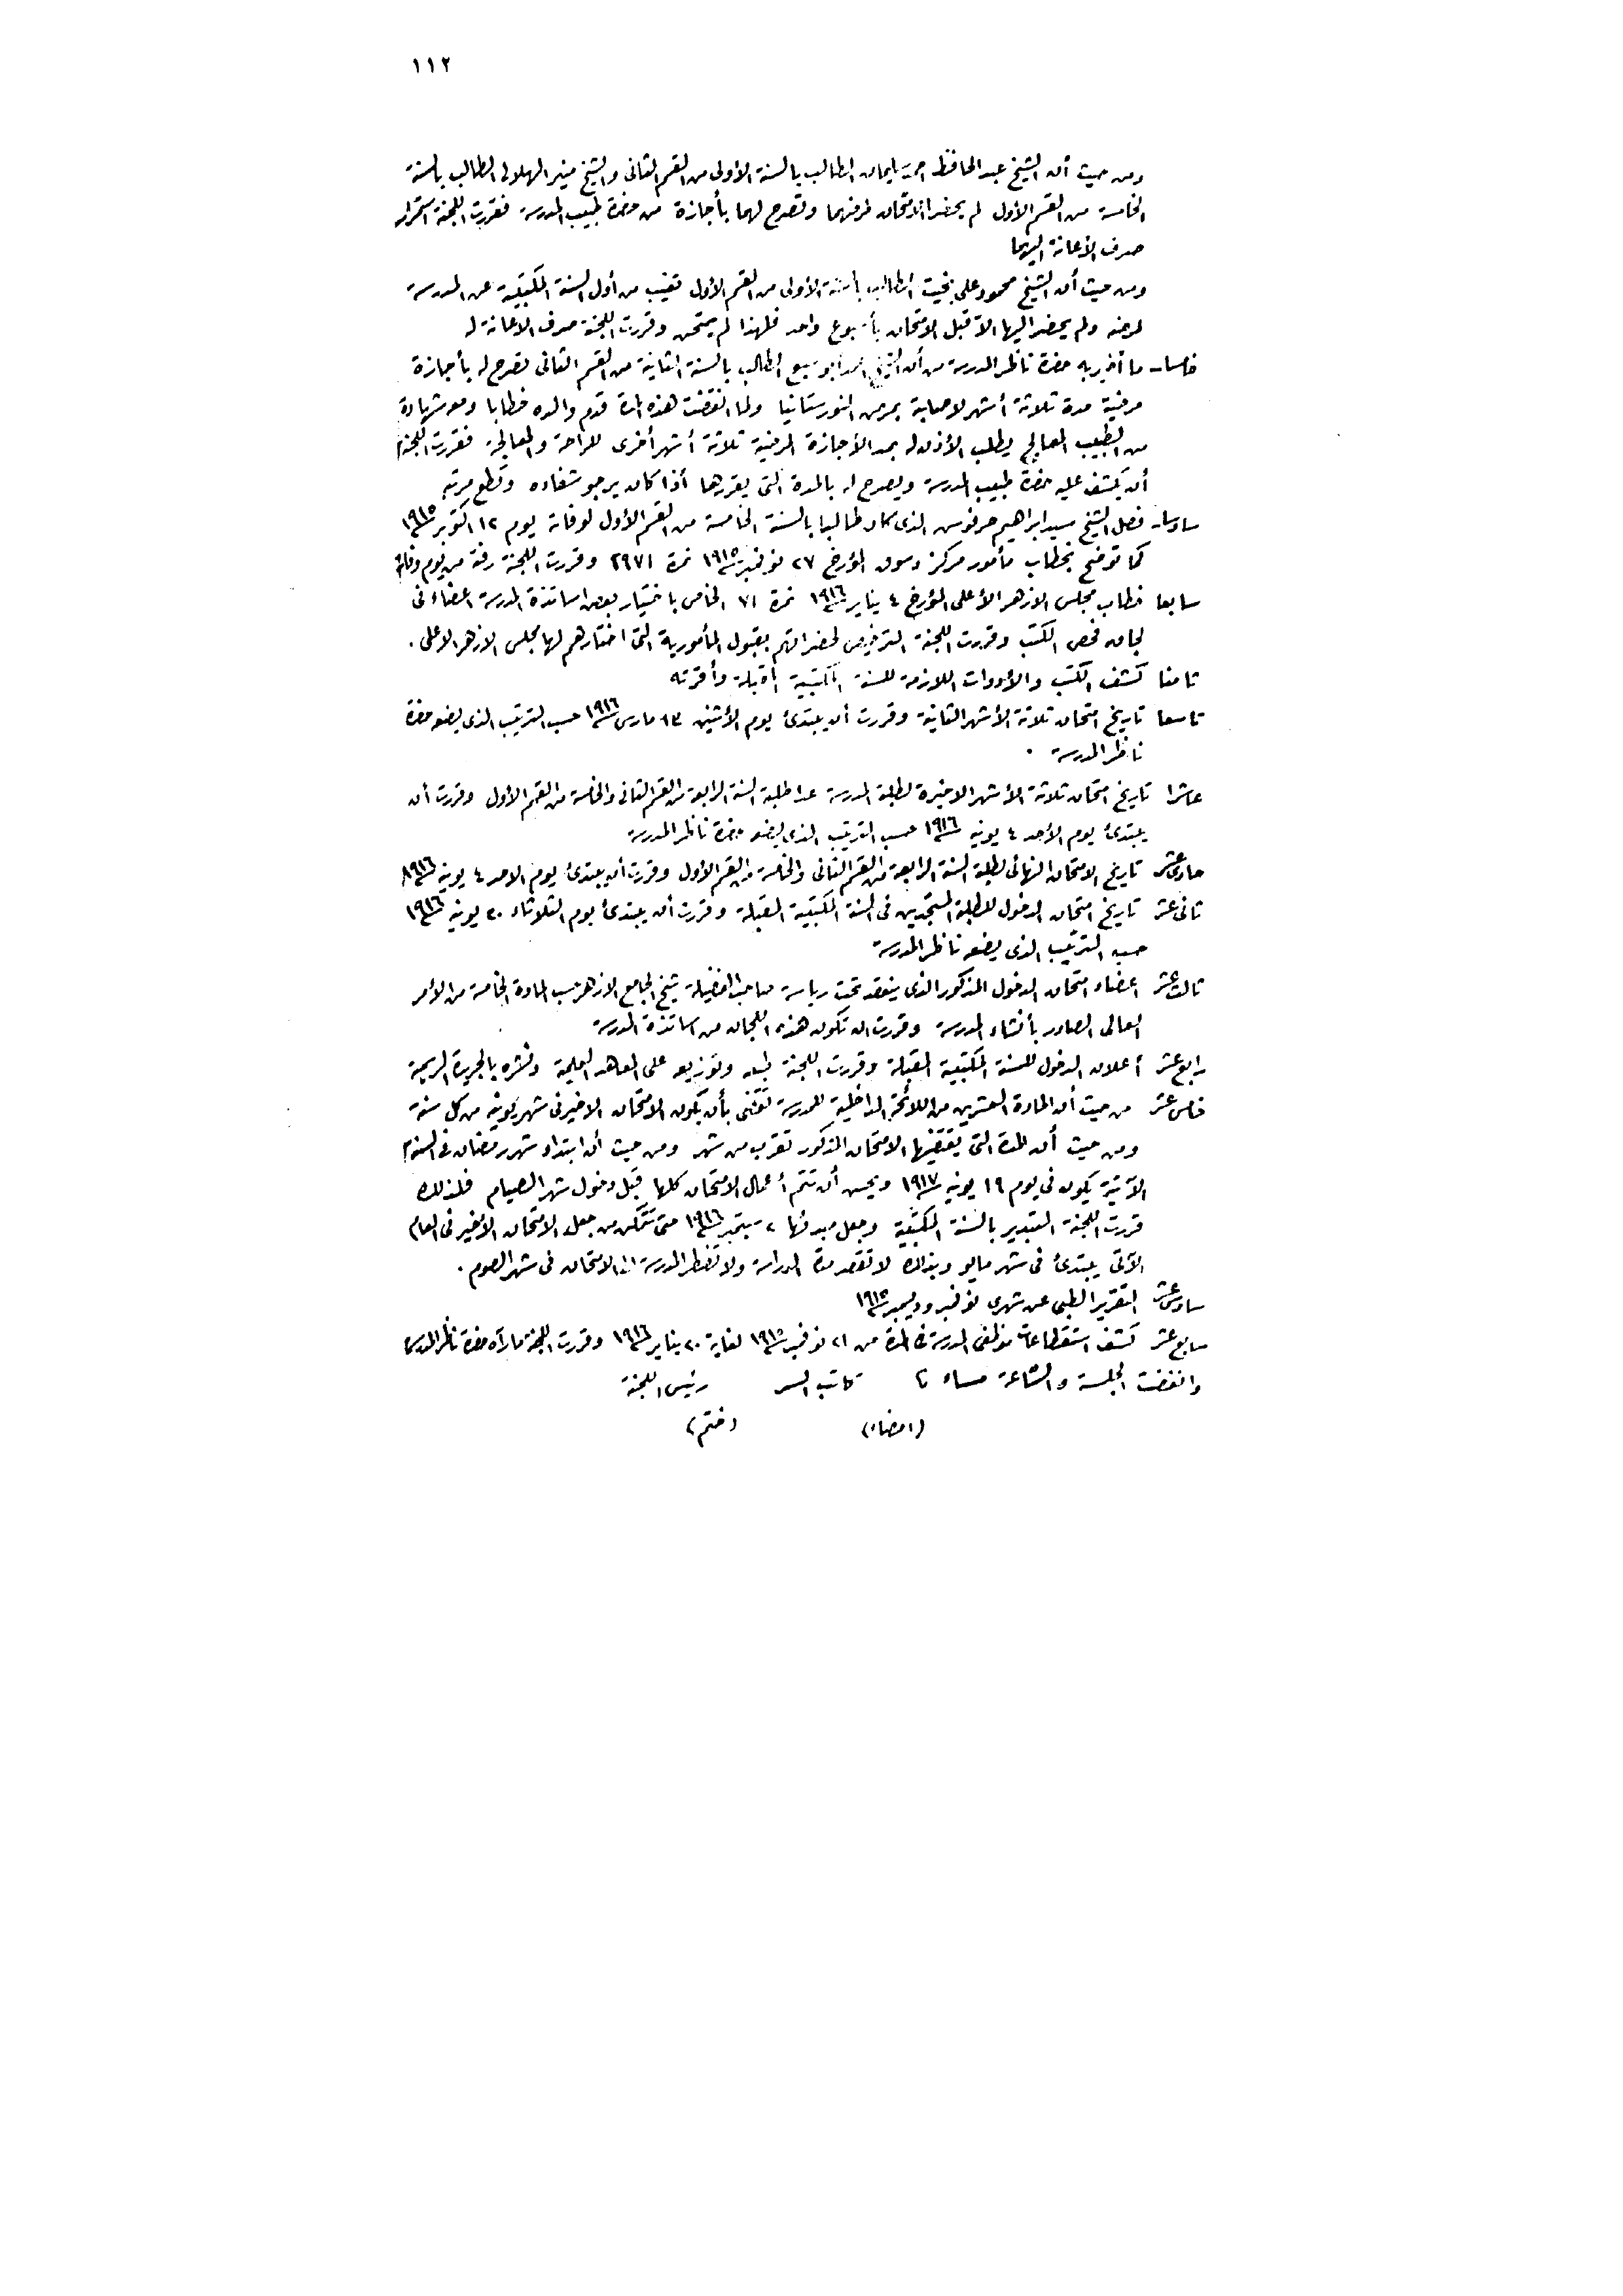 ١١٢
ومن حيث أن الشيخ عبد الحافظ احمد ايمان الطالب بالسنة الأولى من القسم الثانى والشيخ منير الهلالى الطالب بالسنة
الخامسة من القسم الأول لم يحضرا الامتحان لمرضهما وتصرح لهما بأجازة من حضرة طبيب المدرسة فقررت اللجنة استمرار
صرف الأعانة اليهما
ومن حيث أن الشيخ محمود على بخيت الطالب بالسنة الأولى من القسم الأول تغيب من أول السنة المكتبية عن المدرسة
لمرضه ولم يحضر اليها الا قبل الامتحان بأسبوع واحد فلهذا لم يمتحن وقررت اللجنة صرف الاعانة له
خامسا ما أخبر به حضرة ناظر المدرسة من أن الشيخ احمد أبو سبع الطالب بالسنة الثانية من القسم الثانى تصرح له بأجازة
مرضية مدة ثلاثة أشهر لاصابة بمرض النورستانيا ولما انقضت هذه المدة قدم والده خطابا ومعه شهادة
من الطبيب المعالج يطلب الأذن له بمد الأجازة المرضية ثلاثة أشهر أخرى للراحة والمعالجة فقررت اللجنة
أن يكشف عليه حضرة طبيب المدرسة ويصرح له بالمدة التى يقررها أذا كان يرجو شفاءه وقطع مرتبه
سادسا فصل الشيخ سيد ابراهيم حرفوش الذى كان طالبا بالسنة الخامسة من القسم الأول لوفاته يوم ١٢ اكتوبر ١٩١٥
كما توضح بخطاب مأمور مركز دسوق المؤرخ ٢٧ نوفمبر ١٩١٥ نمرة ٢٩٧١ وقررت اللجنة رفته من يوم وفاته
سابعا خطاب مجلس الازهر الأعلى المؤرخ ٤ يناير ١٩١٦ نمرة ٧١ الخاص باختيار بعض اساتذة المدرسة اعضاء فى
لجان فحص الكتب وقررت اللجنة الترخيص لحضراتهم بقبول المأمورية التى اختارهم لها مجلس الازهر الاعلى .
ثامنا كشف الكتب والأدوات اللازمة للسنة المكتبية المقبلة وأقرته
تاسعا تاريخ امتحان ثلاثة الأشهر الثانية وقررت أن يبتدئ يوم الأثنين ١٣ مارس ١٩١٦ حسب الترتيب الذى يضعه حضرة
ناظر المدرسة .
عاشرا تاريخ امتحان ثلاثة الأشهر الاخيرة لطلبة المدرسة عدا طلبة السنة الرابعة من القسم الثانى والخامسة من القسم الأول وقررت أن
يبتدئ يوم الأحد ٤ يونيه ١٩١٦ حسب الترتيب الذى يضعه حضرة ناظر المدرسة
حادى عشر تاريخ الامتحان النهائى لطلبة السنة الرابعة من القسم الثانى والخامسة من القسم الأول وقررت أن يبتدئ يوم الاحد ٤ يونيه ١٩١٦
ثانى عشر تاريخ امتحان الدخول للطلبة المستجدين فى السنة المكتبية المقبلة وقررت أن يبتدئ يوم الثلاثاء ٢٠ يونيه ١٩١٦
حسب الترتيب الذى يضعه ناظر المدرسة
ثالث عشر اعضاء امتحان الدخول المذكور الذى ينعقد تحت رياسة صاحب الفضيلة شيخ الجامع الازهر حسب المادة الخامسة من الأمر
العالى الصادر بأنشاء المدرسة وقررت ان تكون هذه اللجان من اساتذة المدرسة
رابع عشر أعلان الدخول للسنة المكتبية المقبلة وقررت اللجنة طبعه وتوزيعه على المعاهد العلمية ونشره بالجريدة الرسمية
خامس عشر من حيث أن المادة العشرين من اللائحة الداخلية للمدرسة تقضى بأن يكون الامتحان الاخير فى شهر يونيه من كل سنة
ومن حيث أن المدة التى يقتضيها الامتحان المذكور تقرب من شهر ومن حيث أن ابتداء شهر رمضان فى السنة
الآتية يكون فى يوم ١٩ يونيه ١٩١٧ ويحسن أن تتم أعمال الامتحان كلها قبل دخول شهر الصيام فلذلك
قررت اللجنة التبدير بالسنة المكتبية وجعل مبدئها ٢ سبتمبر ١٩١٦ حتى تتمكن من جعل الامتحان الأخير فى العام
الآتى يبتدئ فى شهر مايو وبذلك لا تقصر مدة الدراسة ولا تضطر المدرسة الى الامتحان فى شهر الصوم .
سادس عشر التقرير الطبى عن شهرى نوفمبر وديسمبر ١٩١٥
سابع عشر كشف استقطاعات موظفى المدرسة فى المدة من ٢١ نوفمبر ١٩١٥ لغاية ٢٠ يناير ١٩١٦ وقررت اللجنة ما رآه حضرة ناظر المدرسة
وانفضت الجلسة والساعة مساء كاتب السر رئيس اللجنة
(امضاء) (ختم)